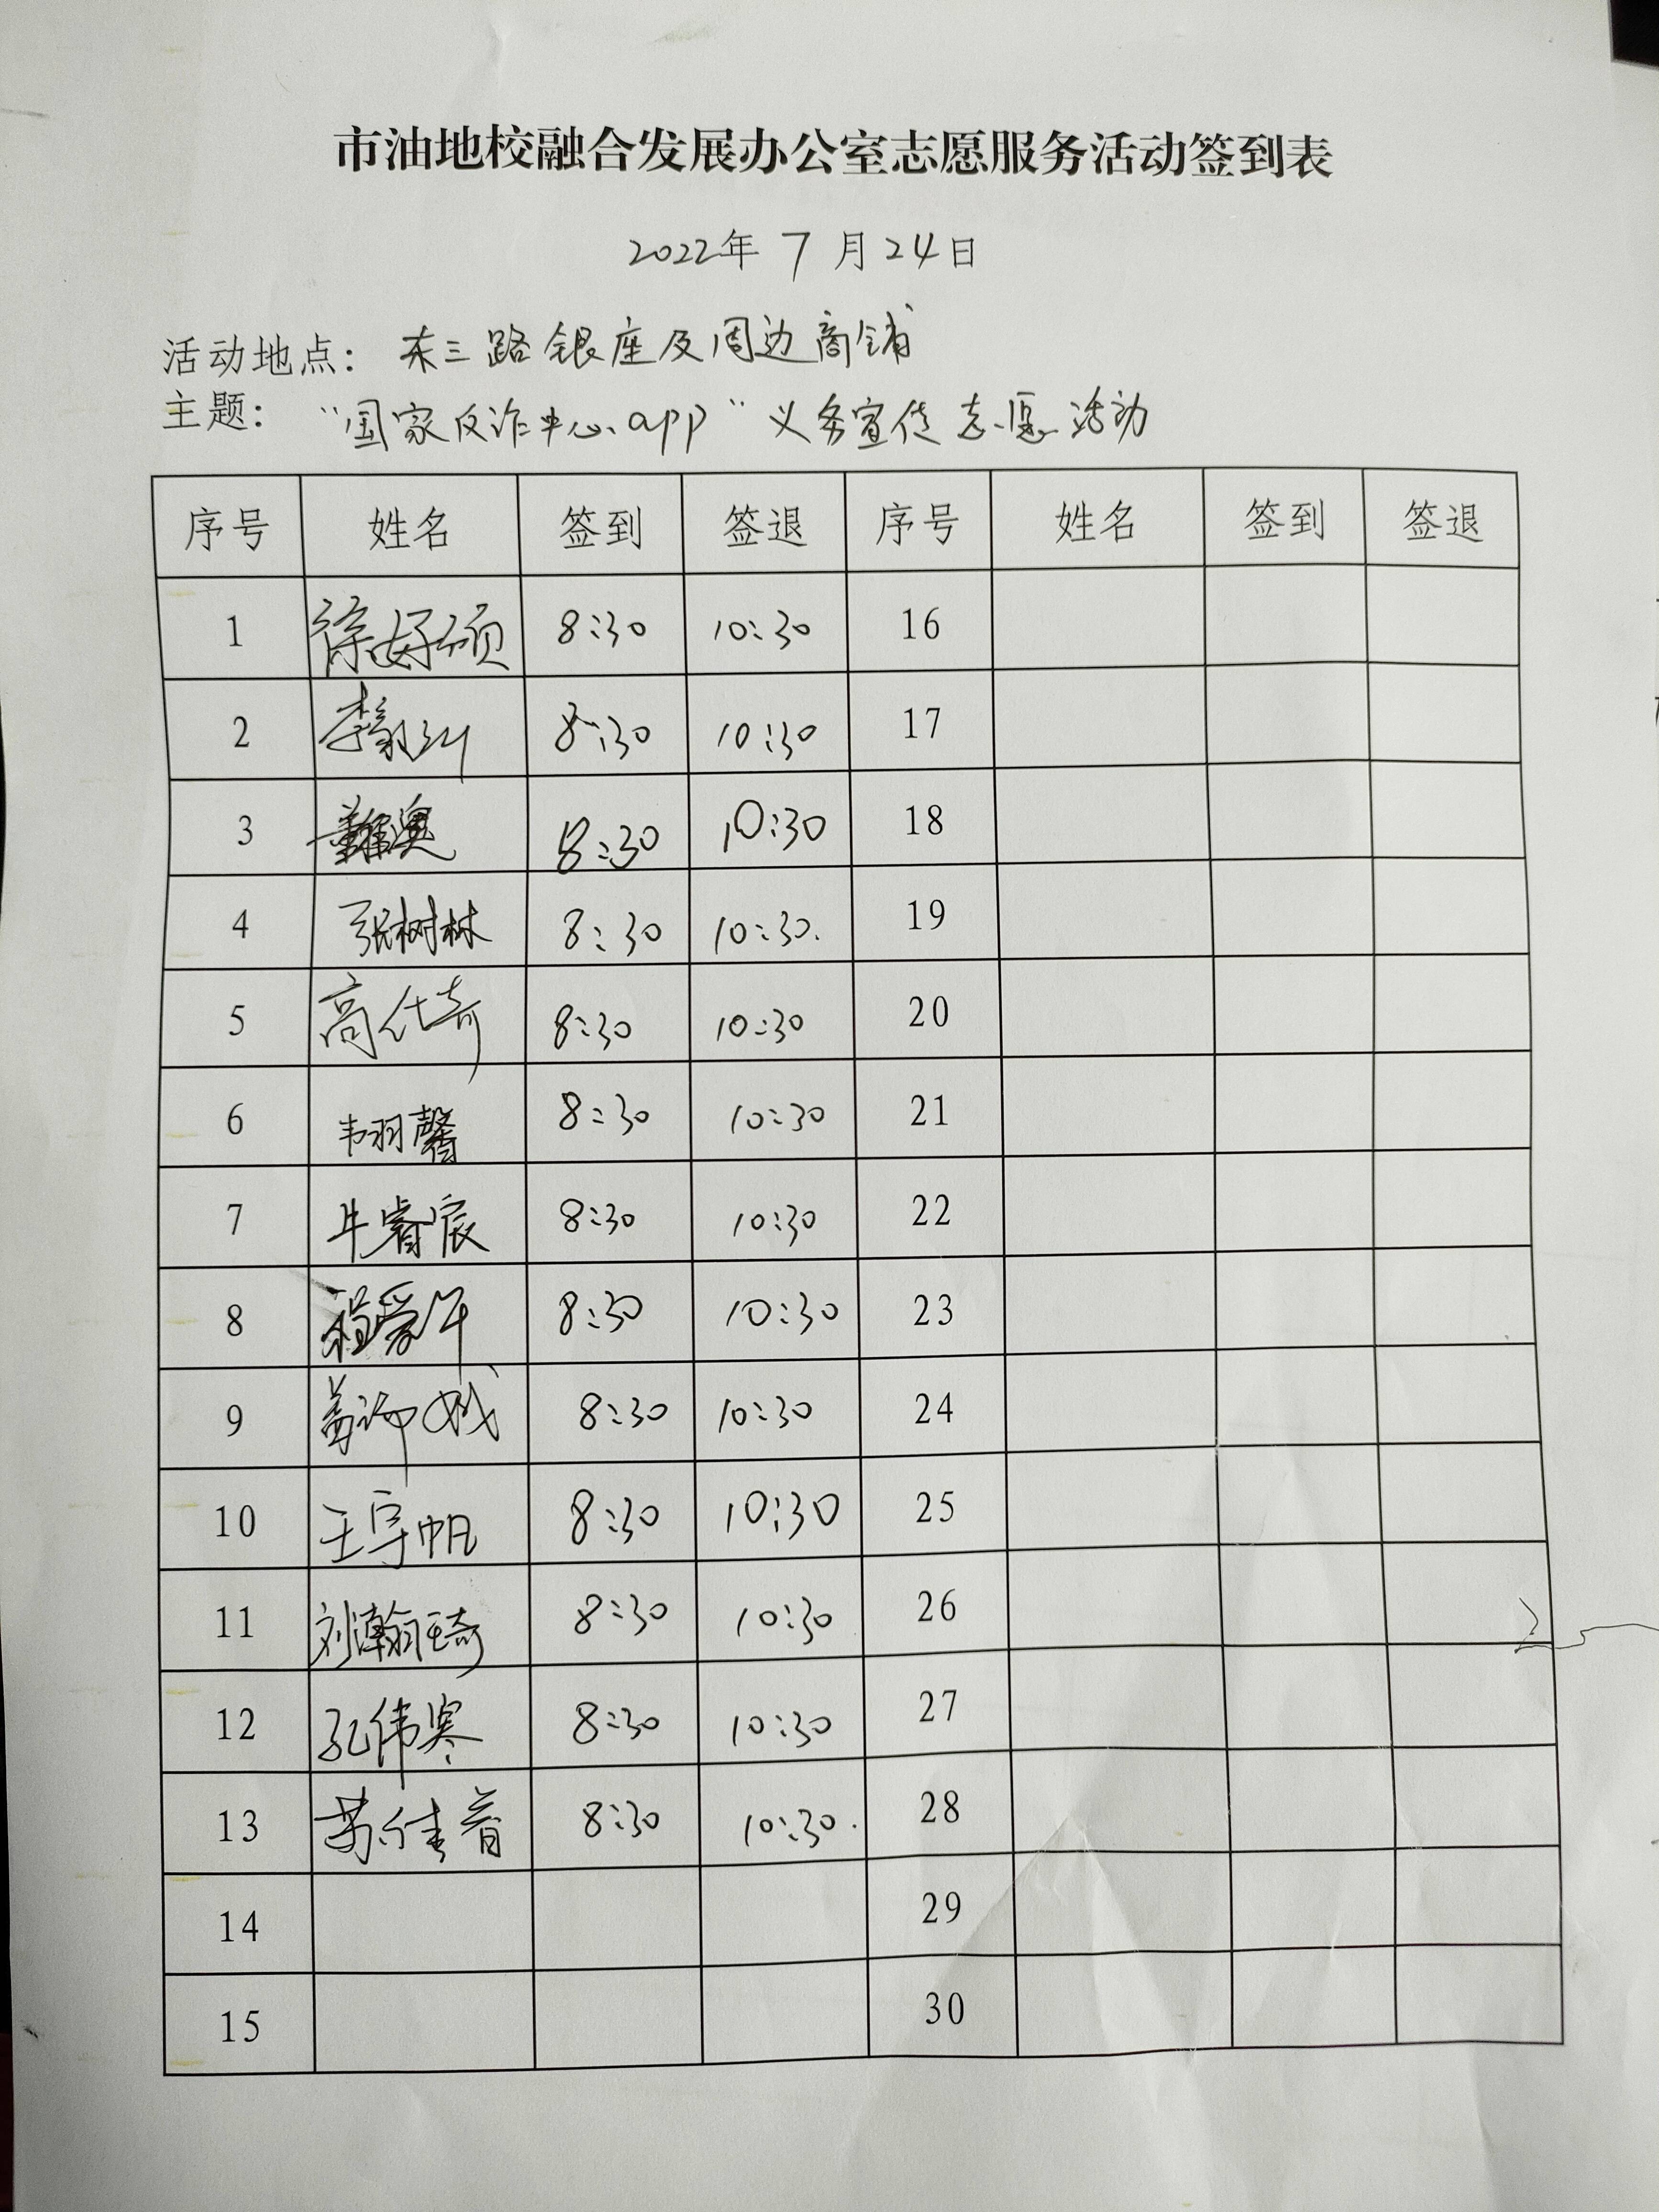 市油地校融合发展办公室志愿服务活动签到表
2022年 7 月 24日
活动地点： 东三路银座及周边商铺
主题： “国家反诈中心app”义务宣传志愿活动
序号 姓名 签到 签退 序号 姓名 签到 签退
1 徐好硕 8:30 10:30 16
2 8:30 10:30 17
3 8:30 10:30 18
4 张树林 8:30 10:30. 19
5 高仕奇 8:30 10:30 20
6 韦羽馨 8:30 10:30 21
7 牛睿宸 8:30 10:30 22
8 程爱午 8:30 10:30 23
9 8:30 10:30 24
10 王宇帆 8:30 10:30 25
11 刘瀚琦 8:30 10:30 26
12 孔伟寒 8:30 10:30 27
13 苏佳音 8:30 10:30. 28
14 29
15 30